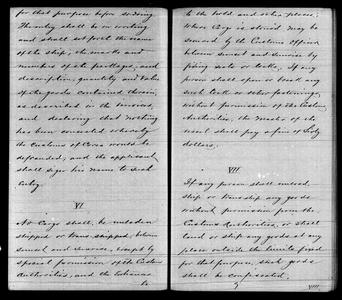 for that purpose before so doing.
The entry shall be in writing
and shall set forth the name
of the ship, the marks and
numbers of the packages, and
description, quantity and value
of the goods contained therein,
as described in the invoices,
and declaring that nothing
has been concealed whereby
the Customs of Corea would be
defrauded, and the applicant
shall sign his name to such
entry.
VI
No Cargo shall be unladen
shipped or transshipped, between
sunset and sunrise, except by
special permission of the Customs
Authorities, and the hatches
to the hold and other places
where Cargo is stored may be
secured by the Customs officer
between sunset and sunrise by
fixing seals or locks. If any
person shall open or break any
such lock or other fastening,
without permission of the Customs
Authorities, the Master of the
vessel shall pay a fine of Sixty
dollars.
VII
If any person shall unload,
ship or transship any goods
without permission from the
Customs Authorities, or shall
land or ship any goods at any
place outside the limits fixed
for that purpose, such goods
shall be confiscated.
VIII